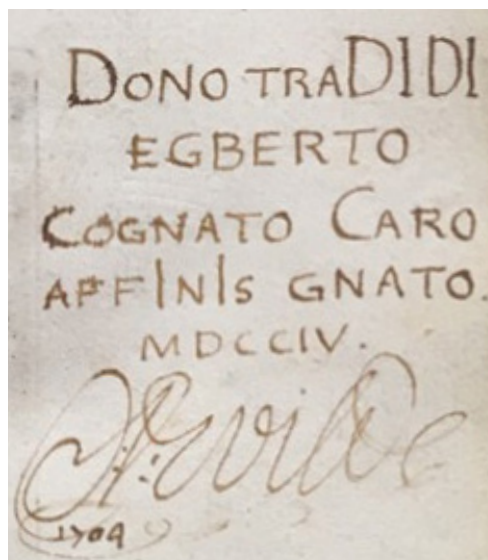 DONO TRADIDI
EGBERTO
COGNATO CARO
AFFINIS GNATO.
MDCCIV.
Wilde
1704